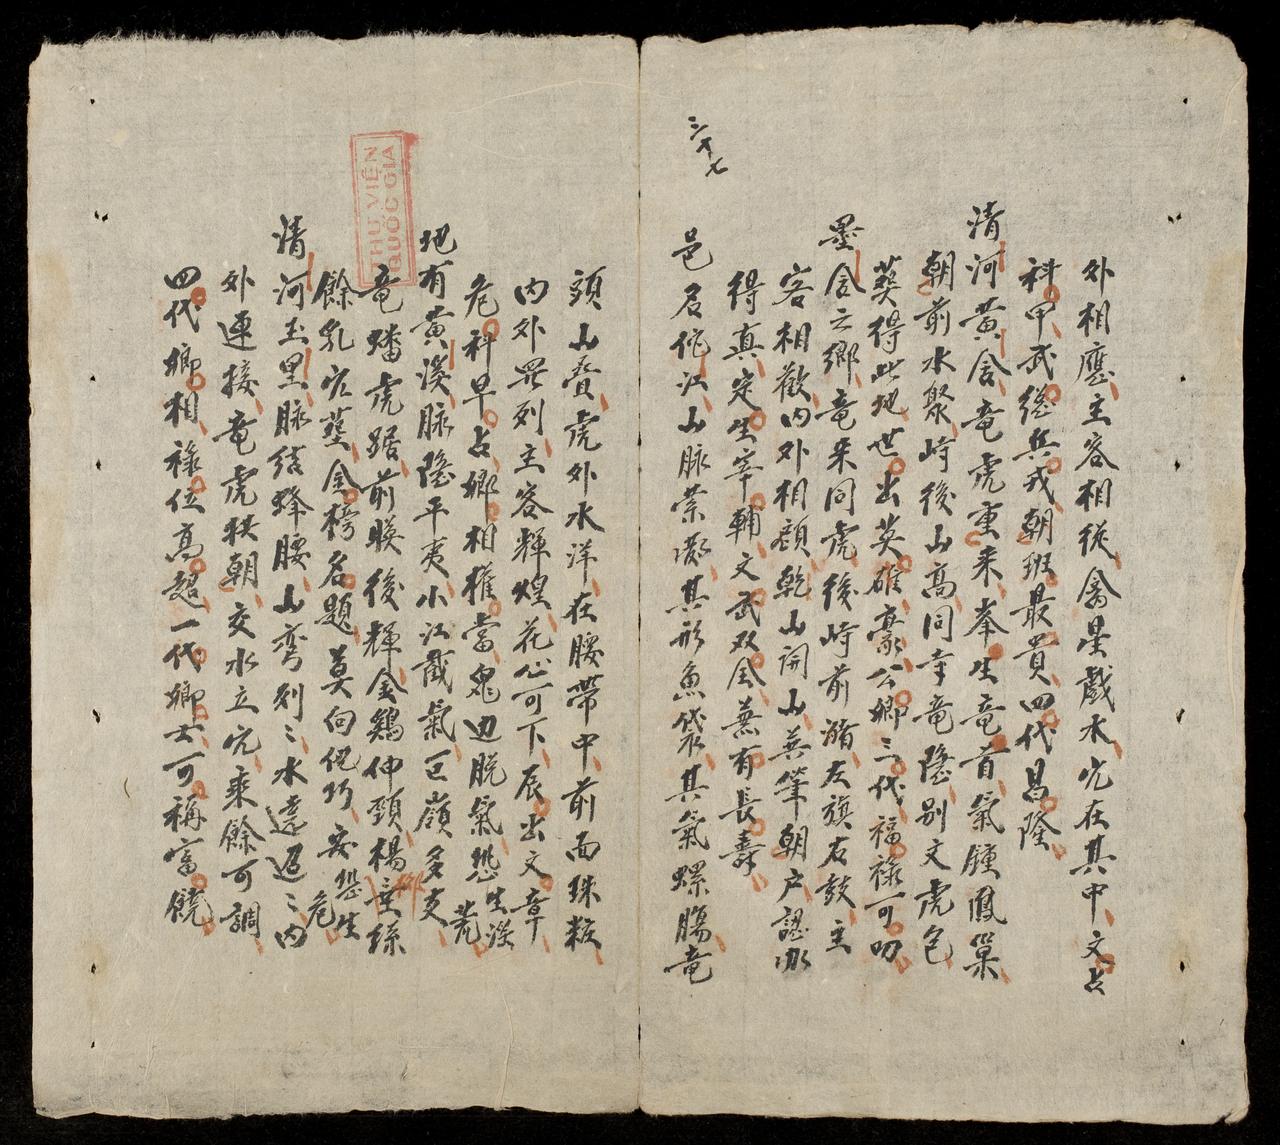 外相應主客相從禽星戲水穴在其中文占
科甲武総兵戎朝班最貴四代昌隆
清河黄舍竜虎重来峯生竜首氣鍾鳳巢
朝前水聚峙後山高同幸竜隐别文虎包
葵得此地世出英雄豪公卿三代福禄可叨
墨舍云鄉竜来同虎後峙前㴜左旗右鼓主
客相歡内外相顧乾山開山英筆朝户認水
得真定生宰輔文武双全兼有長壽
邑名佗江山脉荣凝其形魚袋其氣螺腸竜
三十七
頭山疊虎外水洋在腰帶中前面珠粒
内外羅列主客輝煌花心可下辰出文章
危科早占鄉相權當鬼边脱氣恐生淺荒
地有黄溪脉隐平夷小江截氣巨嶺多支
竜蟠虎踞前暎後輝金鷄伸頸楊垂絲
餘乳穴塟金榜名題莫向倪巧妄恐生危
清河玉里脉结蜂腰山弯列〻水遠迢〻内
外連接竜虎拱朝交水立穴乘餘可調
四代鄉相禄位高超一代卿士可稱富饒
THƯ VIỆN
QUỐC GIA